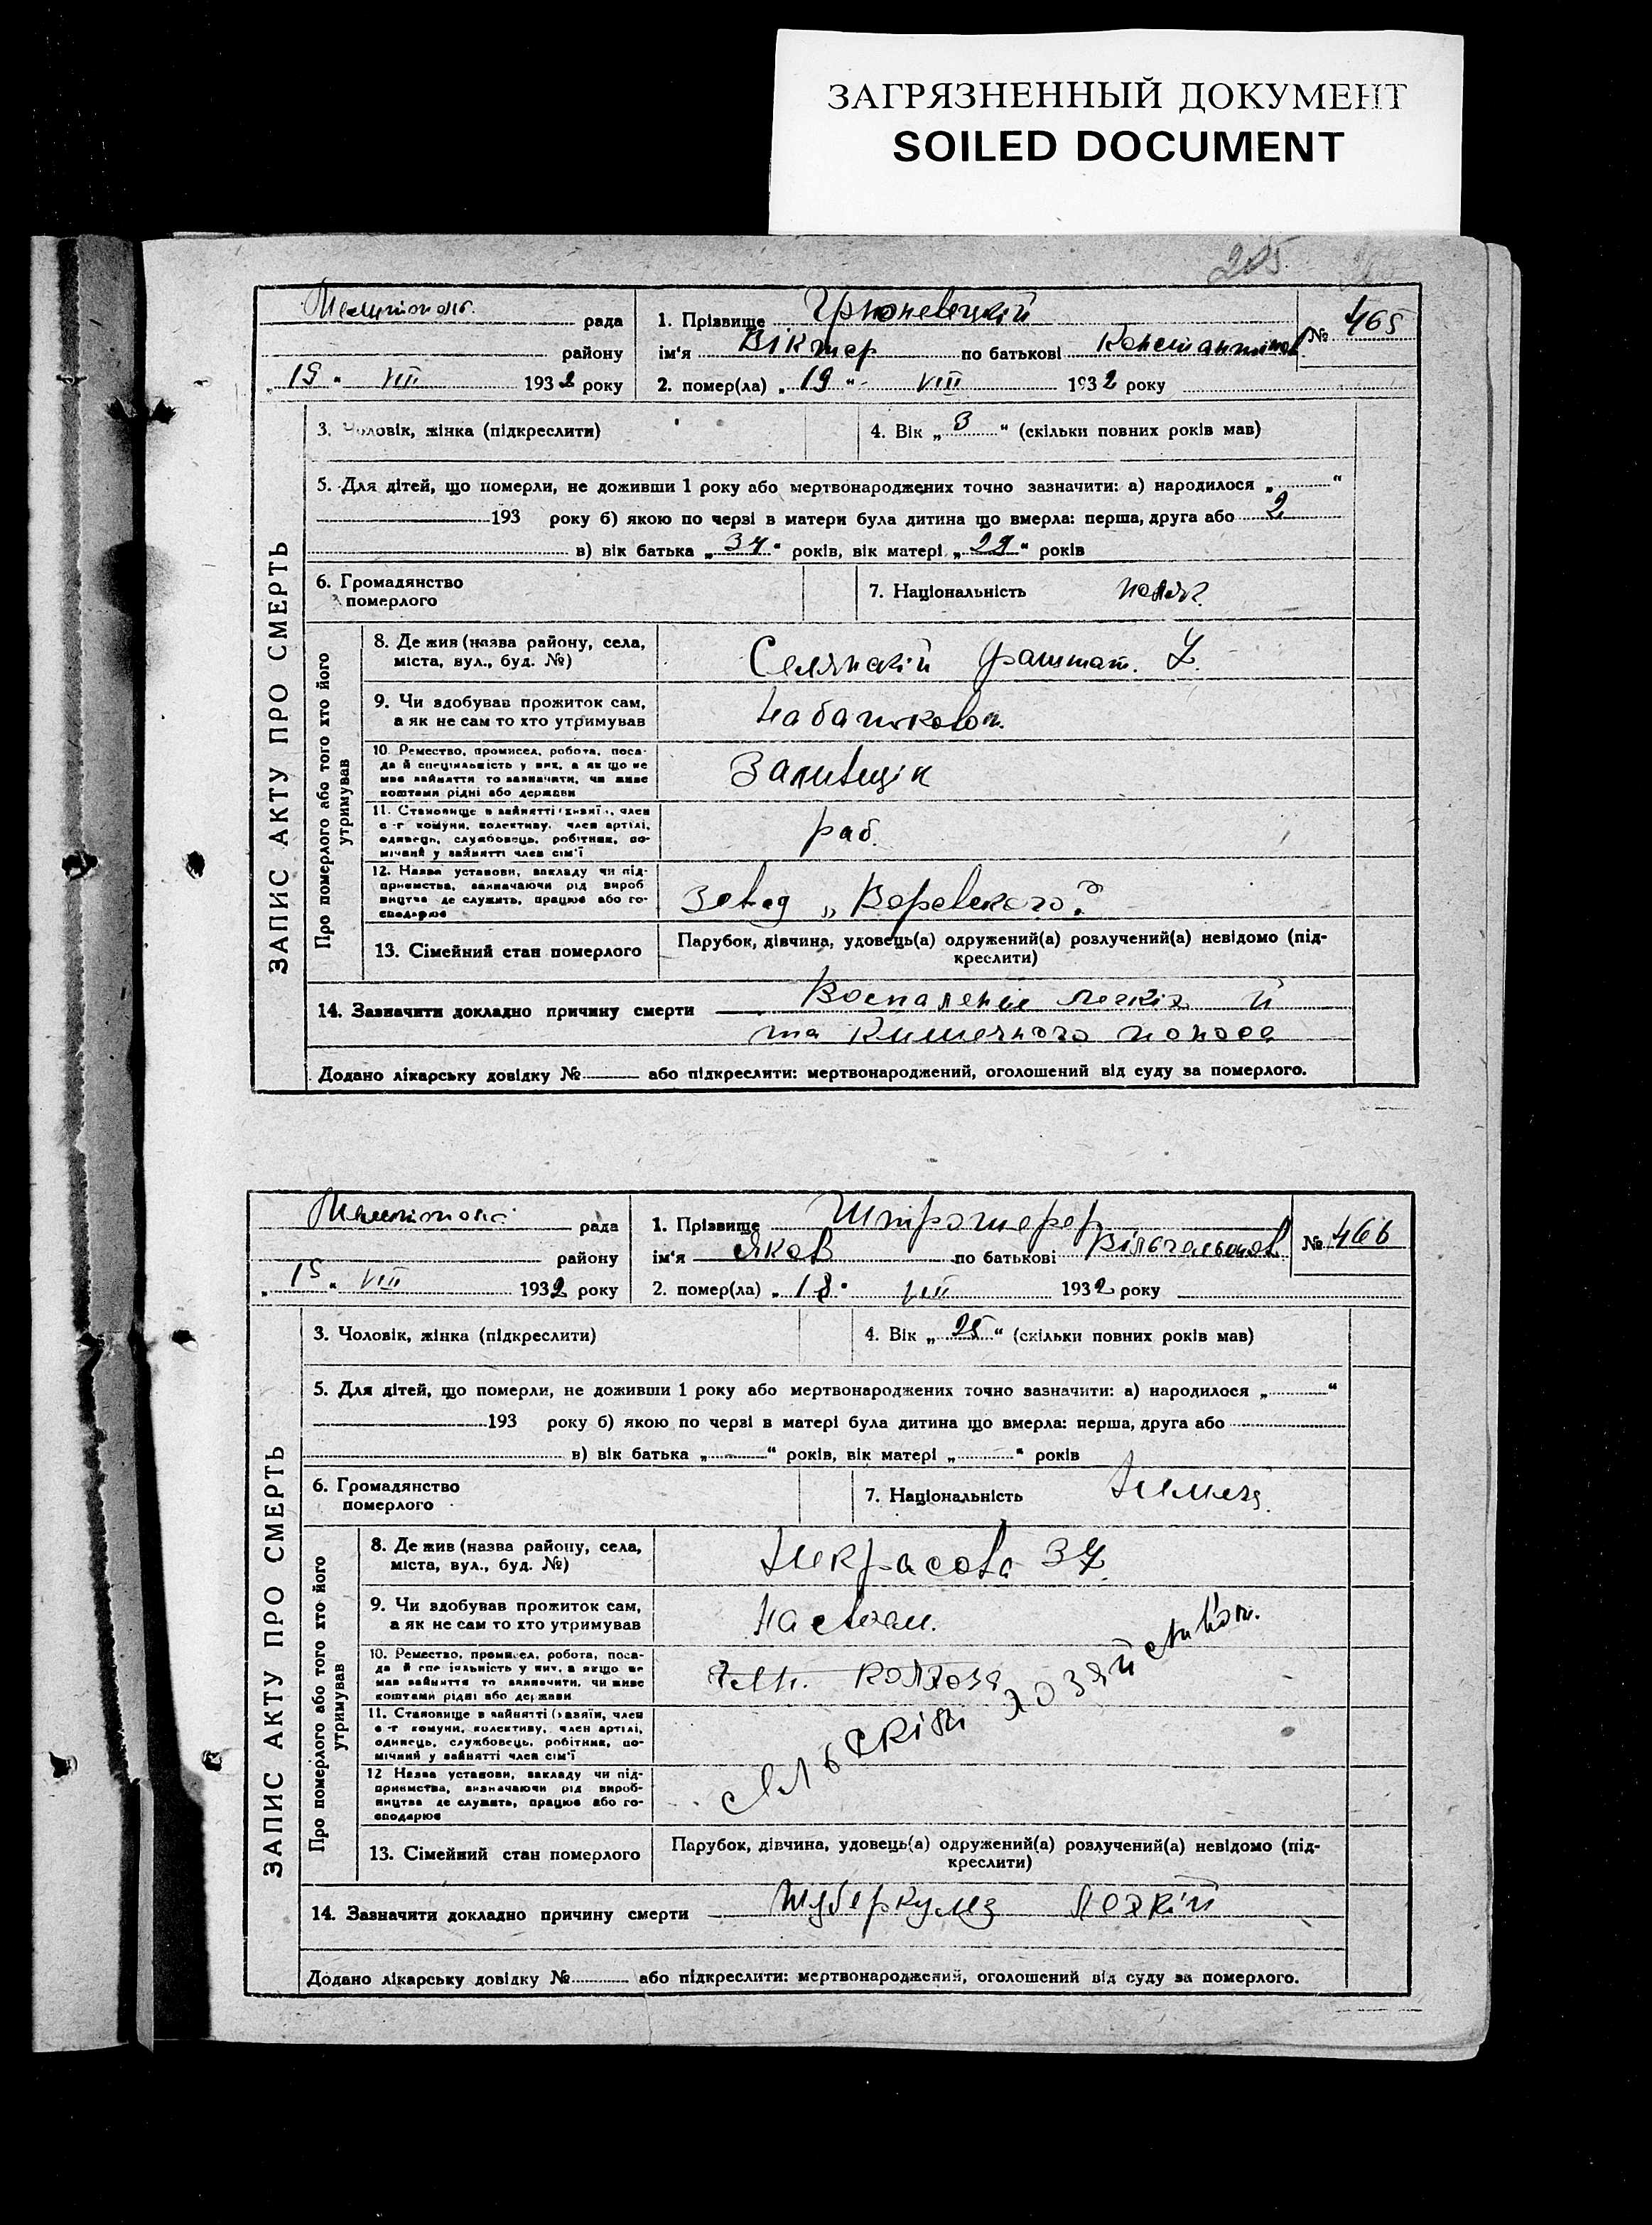 ЗАГРЯЗНЕННЫЙ ДОКУМЕНТ
SOILED DOCUMENT
205
ЗАПИС АКТУ ПРО СМЕРТЬ
рада
району
" 19 " VIII 1932 року
1. Прізвище
ім'я Віктор по батькові Константинов
№ 465
2. помер(ла) " 19 " VIII 1932 року
3. Чоловік, жінка (підкреслити)
4. Вік " 3 " (скільки повних років мав)
5. Для дітей, що померли, не доживши 1 року або мертвонароджених точно зазначити: а) народилося " "
193 року б) якою по черзі в матери була дитина що вмерла: перша, друга або 2
в) вік батька " 34 " років, вік матері " 29 " років
6. Громадянство
померлого
7. Національність поляк
Про померлого або того хто його
утримував
8. Де жив (назва району, села,
міста, вул., буд. №)
9. Чи здобував прожиток сам,
а як не сам то хто утримував
10. Ремество, промисел, робота, поса-
да й спеціяльність у них, а як що не
мав зайняття то зазначити, чи живе
коштами рідні або держави
11. Становище в зайнятті (хазяїн, член
с-г комуни, колективу, член артілі,
одинець, службовець, робітник, по-
мічний у зайнятті член сім'ї
раб.
12. Назва установи, закладу чи під-
приємства, зазначаючи рід вироб
ництва де служить, працює або го-
сподарює
Завод „Воровского"
13. Сімейний стан померлого
Парубок, дівчина, удовець(а) одружений(а) розлучений(а) невідомо (під-
креслити)
14. Зазначити докладно причину смерти Воспаление легкіх й
та Кишечного поноса
Додано лікарську довідку № або підкреслити: мертвонароджений, оголошений від суду за померлого.
ЗАПИС АКТУ ПРО СМЕРТЬ
рада
району
" 19 " VIII 1932 року
1. Прізвище Штрошерер
ім'я Яков по батькові Вільгельмов
№ 466
2. помер(ла) " 18 " VIII 1932 року
3. Чоловік, жінка (підкреслити)
4. Вік " 25 " (скільки повних років мав)
5. Для дітей, що померли, не доживши 1 року або мертвонароджених точно зазначити: а) народилося " "
193 року б) якою по черзі в матері була дитина що вмерла: перша, друга або
в) вік батька " " років, вік матері " " років
6. Громадянство
померлого
7. Національність
Про померлого або того хто його
утримував
8. Де жив (назва району, села,
міста, вул., буд. №)
Некрасова 37
9. Чи здобував прожиток сам,
а як не сам то хто утримував
На своем.
10. Ремество, промисел, робота, поса-
да й спеціяльність у них, а якщо не
мав зайняття то зазначити, чи живе
коштами рідні або держави
Член. колхоза
11. Становище в зайнятті (хазяїн, член
с-г комуни, колективу, член артілі,
одинець, службовець, робітник, по-
мічний у зайнятті член сім'ї
12 Назва установи, закладу чи під-
приємства, зазначаючи рід вироб-
ництва де служить, працює або го-
сподарює
13. Сімейний стан померлого
Парубок, дівчина, удовець(а) одружений(а) розлучений(а) невідомо (під-
креслити)
14. Зазначити докладно причину смерти Туберкулез Легкій
Додано лікарську довідку № або підкреслити: мертвонароджений, оголошений від суду за померлого.